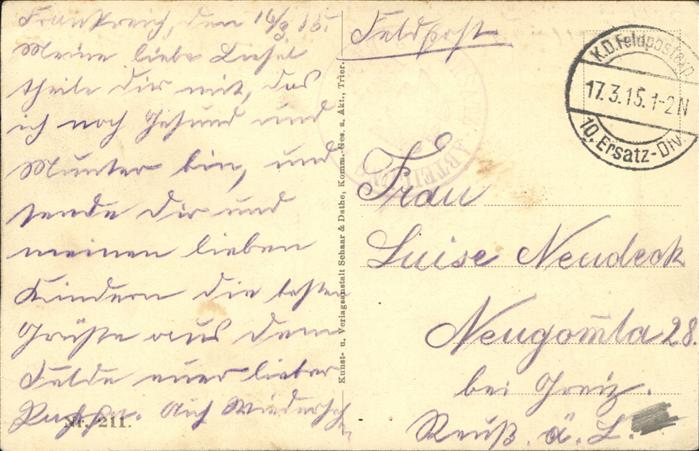 Frankreich, den 16/3. 15.
Meine liebe Liesel
theile dir mit, das
ich noch Gesund und
Munter bin, und
sende Dir und
meinen lieben
Kindern die besten
Grüße aus dem
Felde euer lieber
Auf Wiedersehn
Nr. 211.
Kunst- u. Verlagsanstalt Schaar & Dathe, Komm.-Ges. a. Akt., Trier.
Feldpost
K.D. Feldpostexp.
17.3.15. 1-2N
10. Ersatz-Div.
Frau
Luise Neudeck
Neugomla 28.
bei Greiz.
Reuß. ä. L.